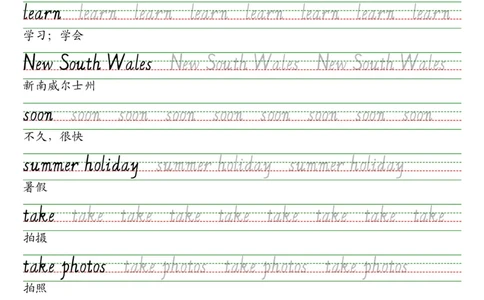 learn learn learn learn learn learn learn learn learn
学习；学会
New South Wales New South Wales New South Wales
新南威尔士州
soon soon soon soon soon soon soon soon soon
不久，很快
summer holiday summer holiday summer holiday
暑假
take take take take take take take take take
拍摄
take photos take photos take photos take photos
拍照